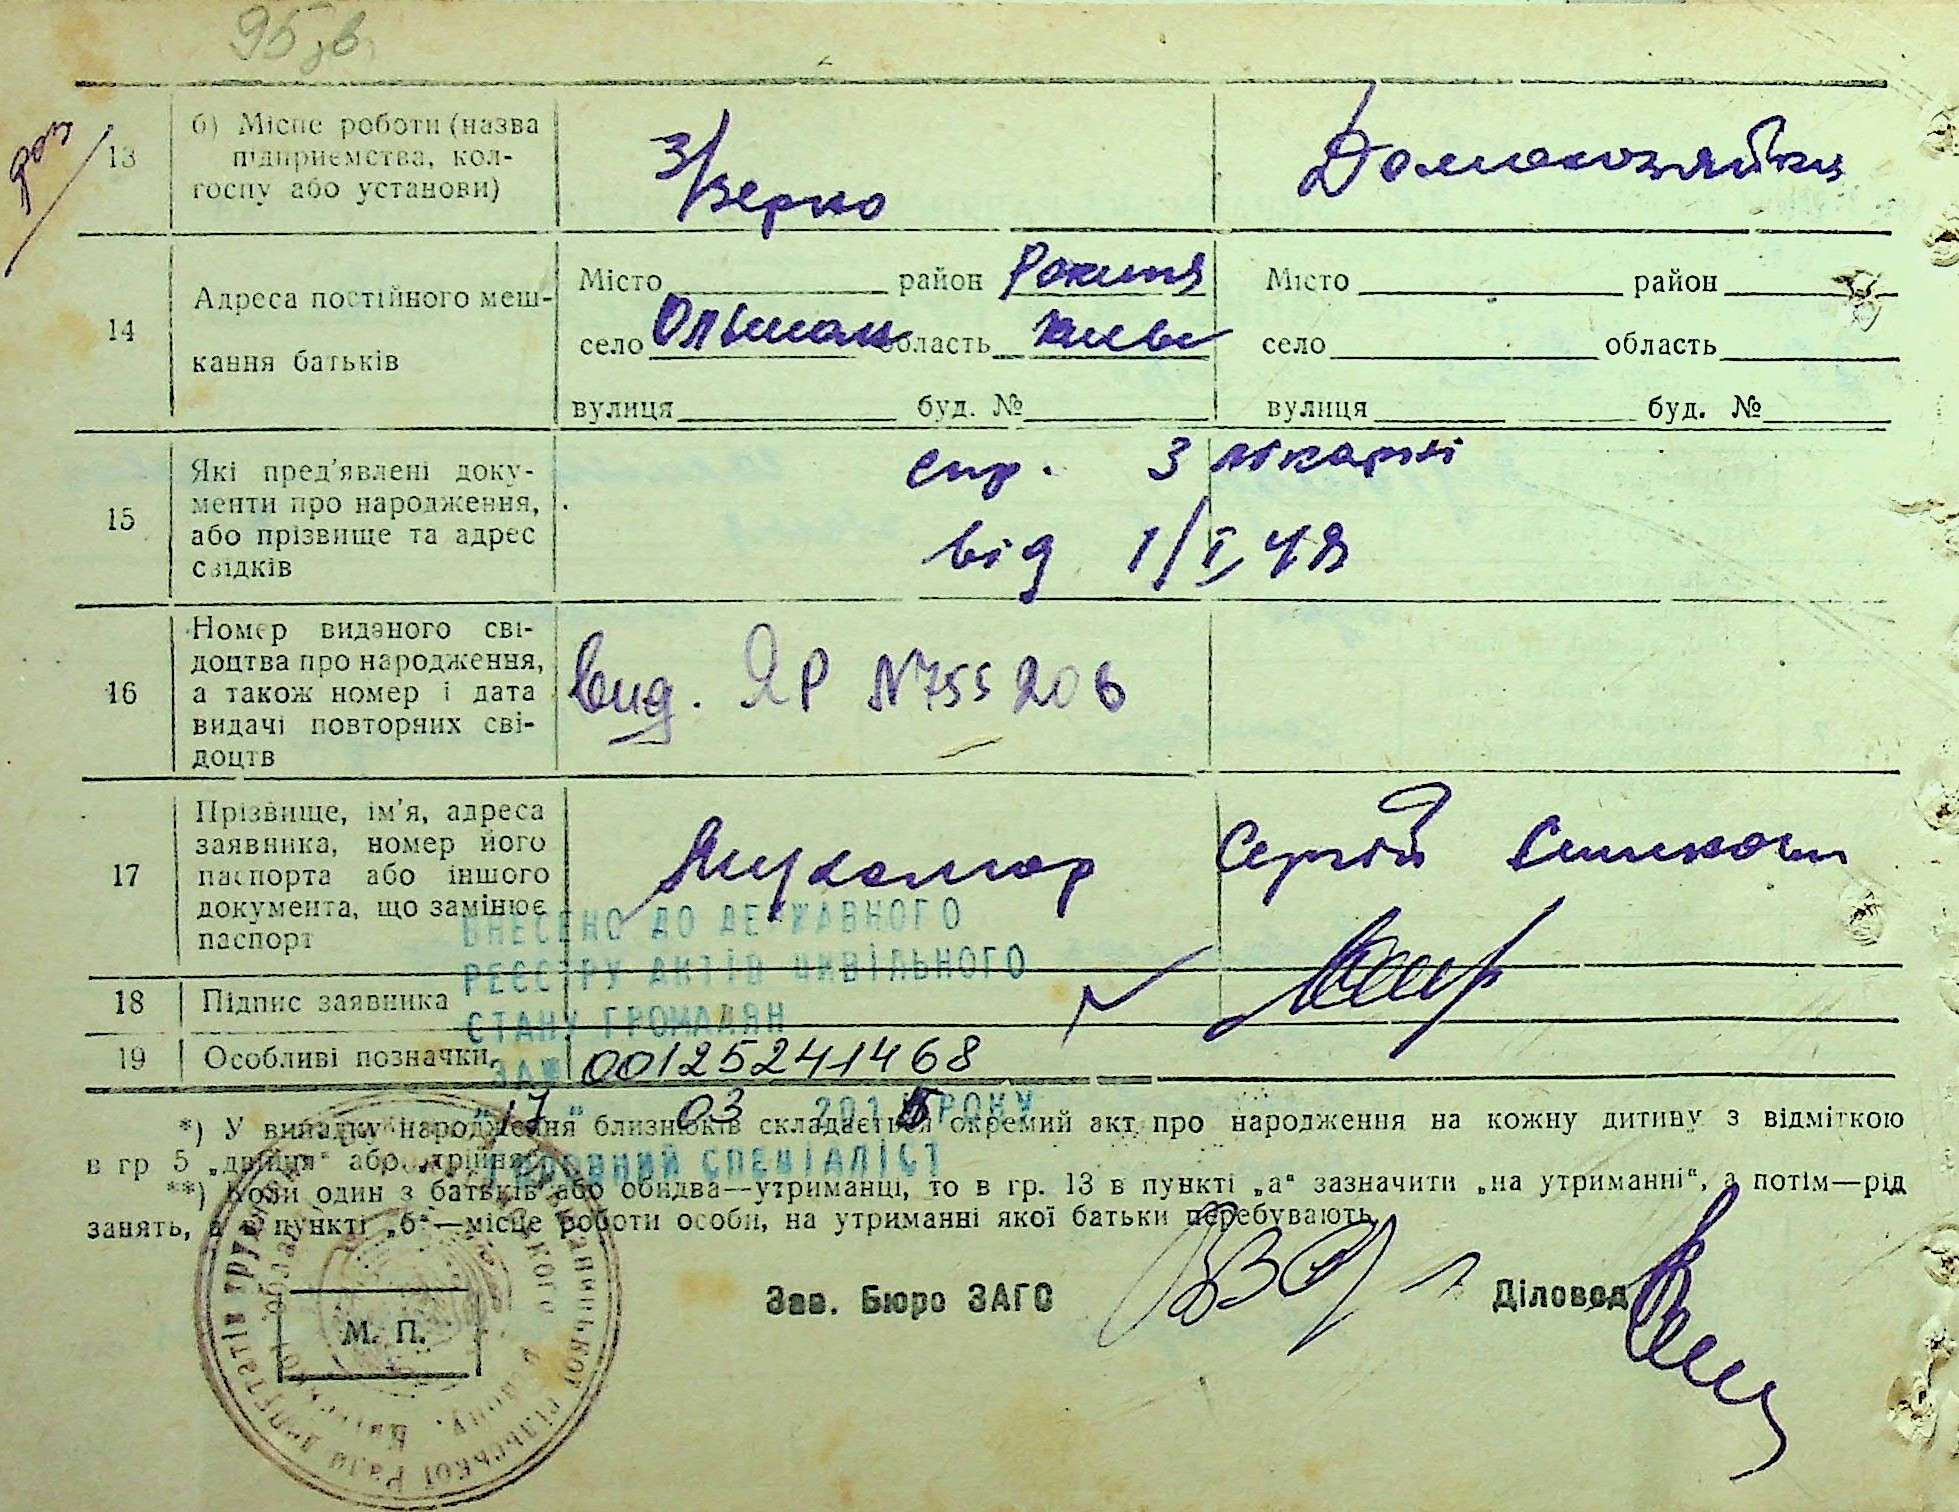 95,в
13
б) Місце роботи (назва
підприємства, кол-
госпу або установи)
З/Зерно
Домохозяйка
14
Адреса постійного меш-
кання батьків
Місто район Рокитн
село Ольшан область Київс
вулиця буд. №
Місто район
село область
вулиця буд. №
15
Які пред'явлені доку-
менти про народження,
або прізвище та адрес
свідків
спр. з лікарні
від 1/I, 48
16
Номер виданого сві-
доцтва про народження,
а також номер і дата
видачі повторних сві-
доцтв
вид. ЯР №755206
17
Прізвище, ім'я, адреса
заявника, номер його
паспорта або іншого
документа, що замінює
паспорт
Сергій
18
Підпис заявника
19
Особливі позначки
ВНЕСЕНО ДО ДЕРЖАВНОГО
РЕЄСТРУ АКТІВ ЦИВІЛЬНОГО
СТАНУ ГРОМАДЯН
ЗА № 00125241468
"17" 03 2015 РОКУ
ГОЛОВНИЙ СПЕЦІАЛІСТ
*) У випадку народження близнюків складається окремий акт про народження на кожну дитину з відміткою
в гр 5 „двійня“ або „трійня“
**) Коли один з батьків або обидва—утриманці, то в гр. 13 в пункті „а“ зазначити „на утриманні“, а потім—рід
занять, а в пункті „б“—місце роботи особи, на утриманні якої батьки перебувають.
Зав. Бюро ЗАГС
Діловод
М. П.
сільської Ради депутатів